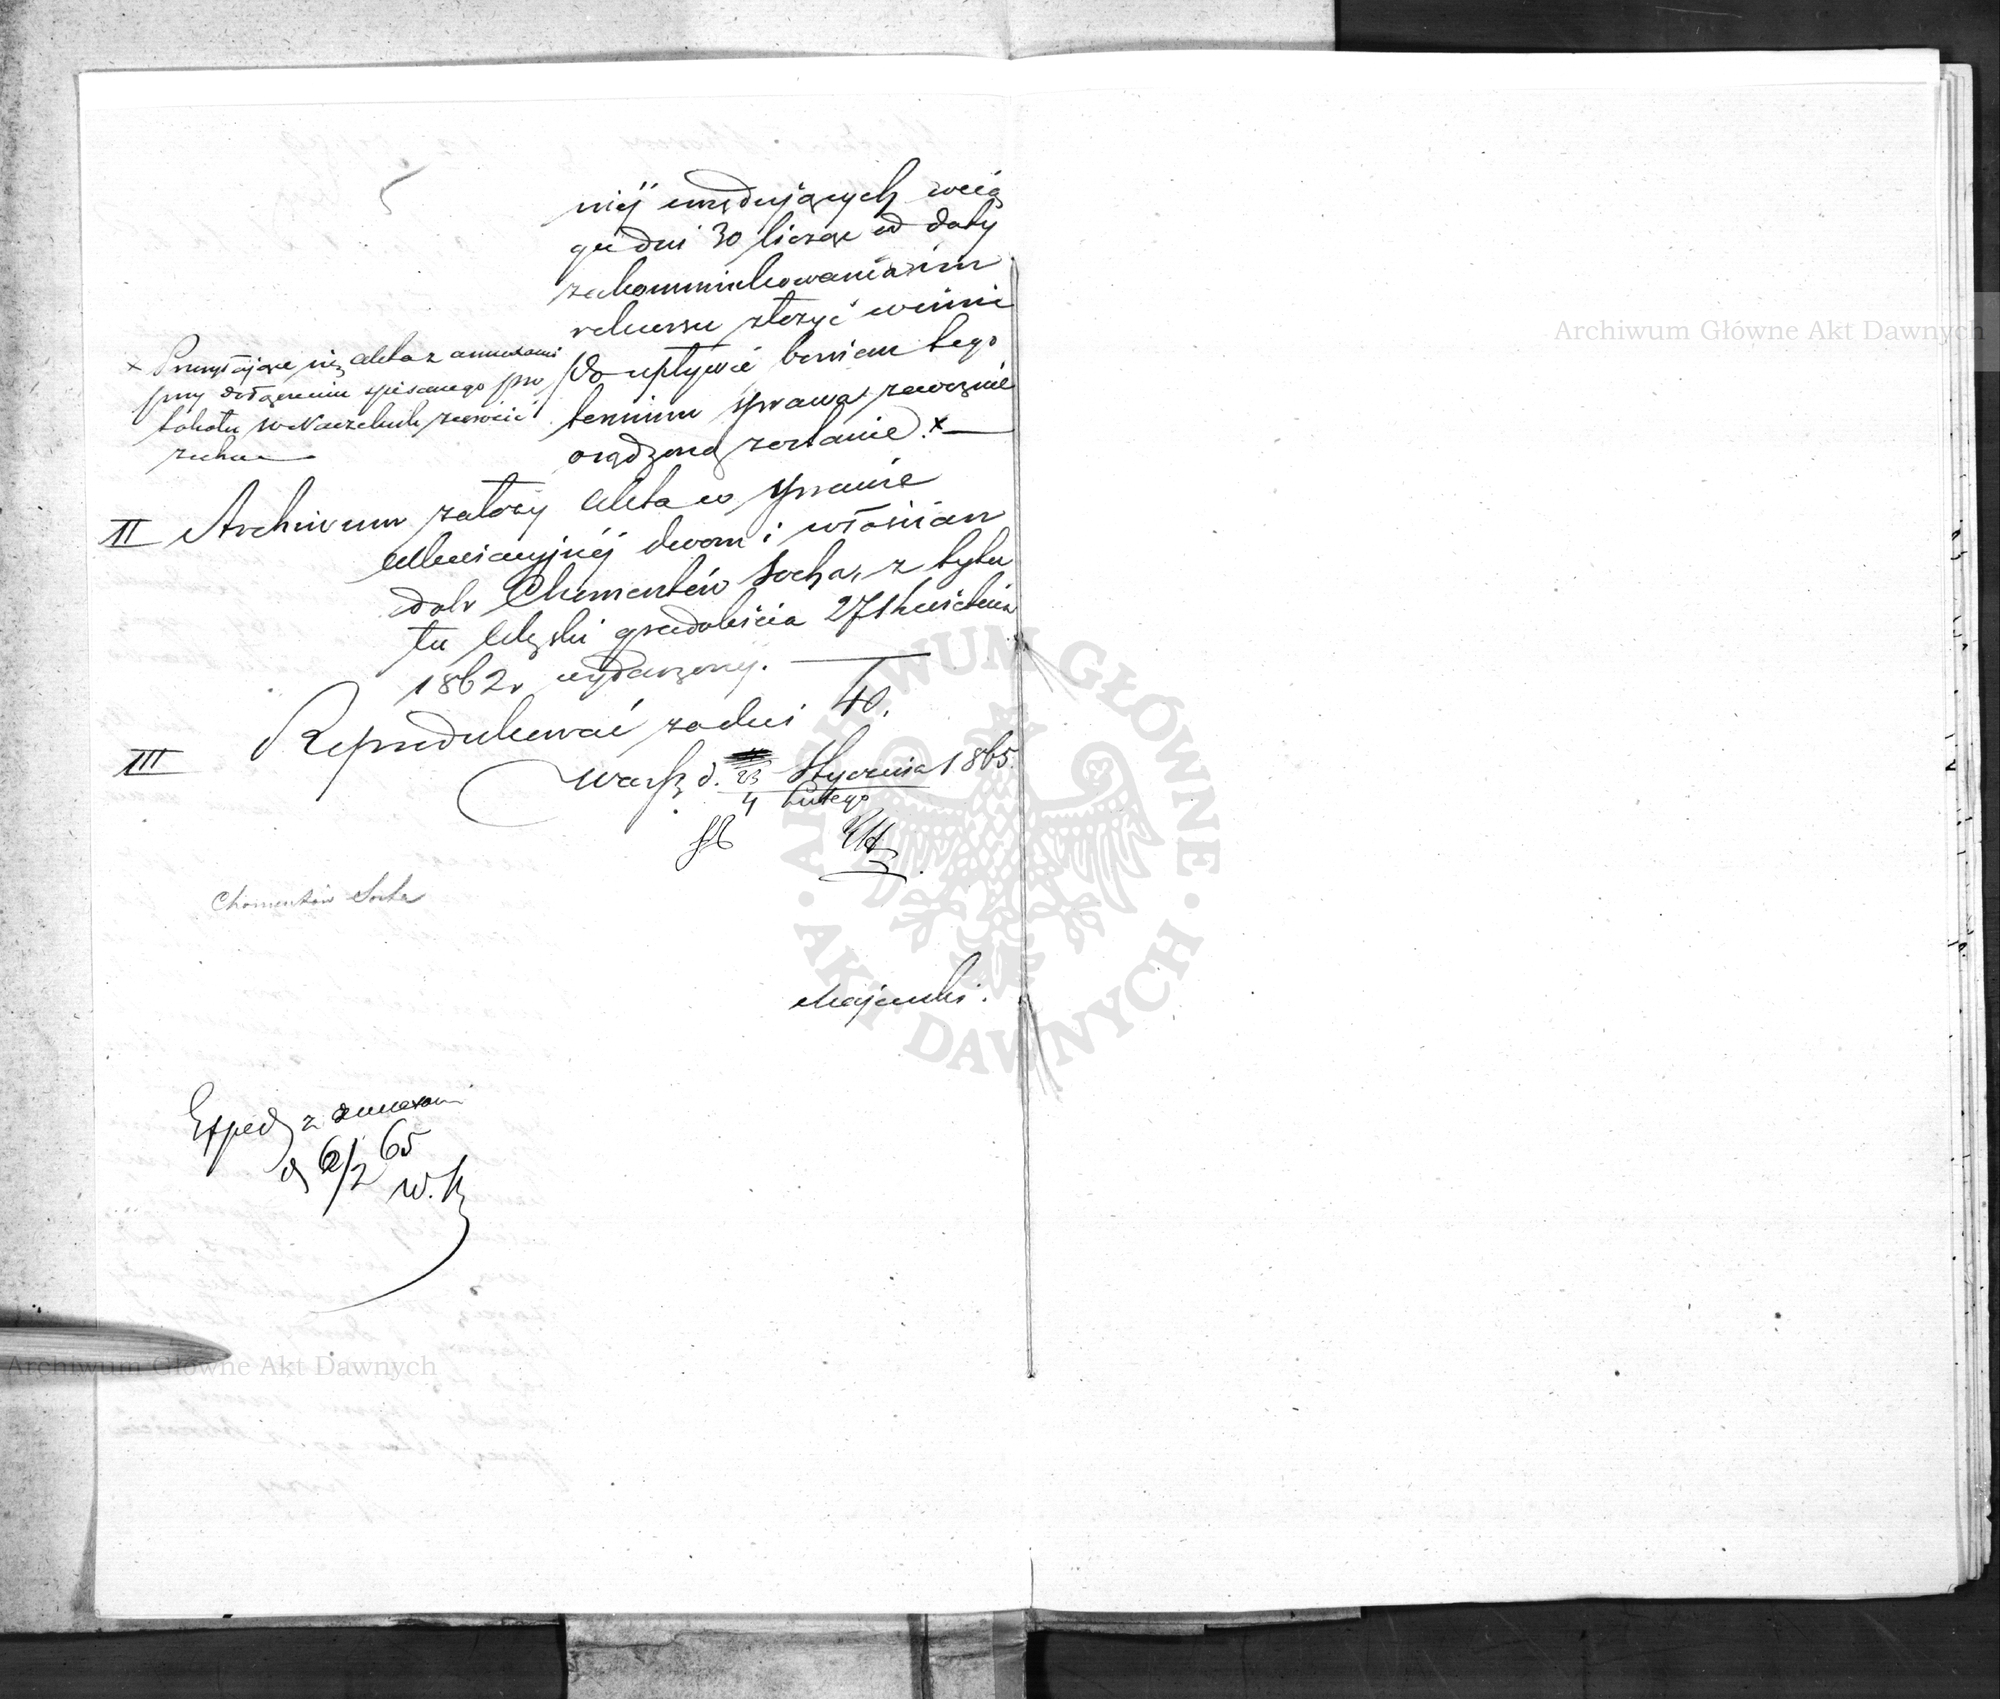 niéj urzędujących wcią
gu dni 30 licząc od daty
zakommunikowania im
rekursu złożyć winni
po upływie bowiem tego
terminu sprawa zaocznie
osądzoną zostanie. x —
x Przesyłające się akta z annexami
przy dołączeniu spisanego pro
tokółu W Naczelnik zwrócić
zechce —
II Archiwum założy akta w sprawie
dworu i włościan
dóbr Chomentów Socha, z tytu
łu klęski gradobicia 27 Kwietnia
1862 r wydarzonej. —
III Reprodukować za dni 40.
Warsz d. 23 Stycznia 1865.
4 Lutego
Chomentów Socha
Majewski.
Exped z annexami
d 6/2 65
W. K
Archiwum Główne Akt Dawnych
Archiwum Główne Akt Dawnych
ARCHIWUM GŁÓWNE • AKT DAWNYCH •